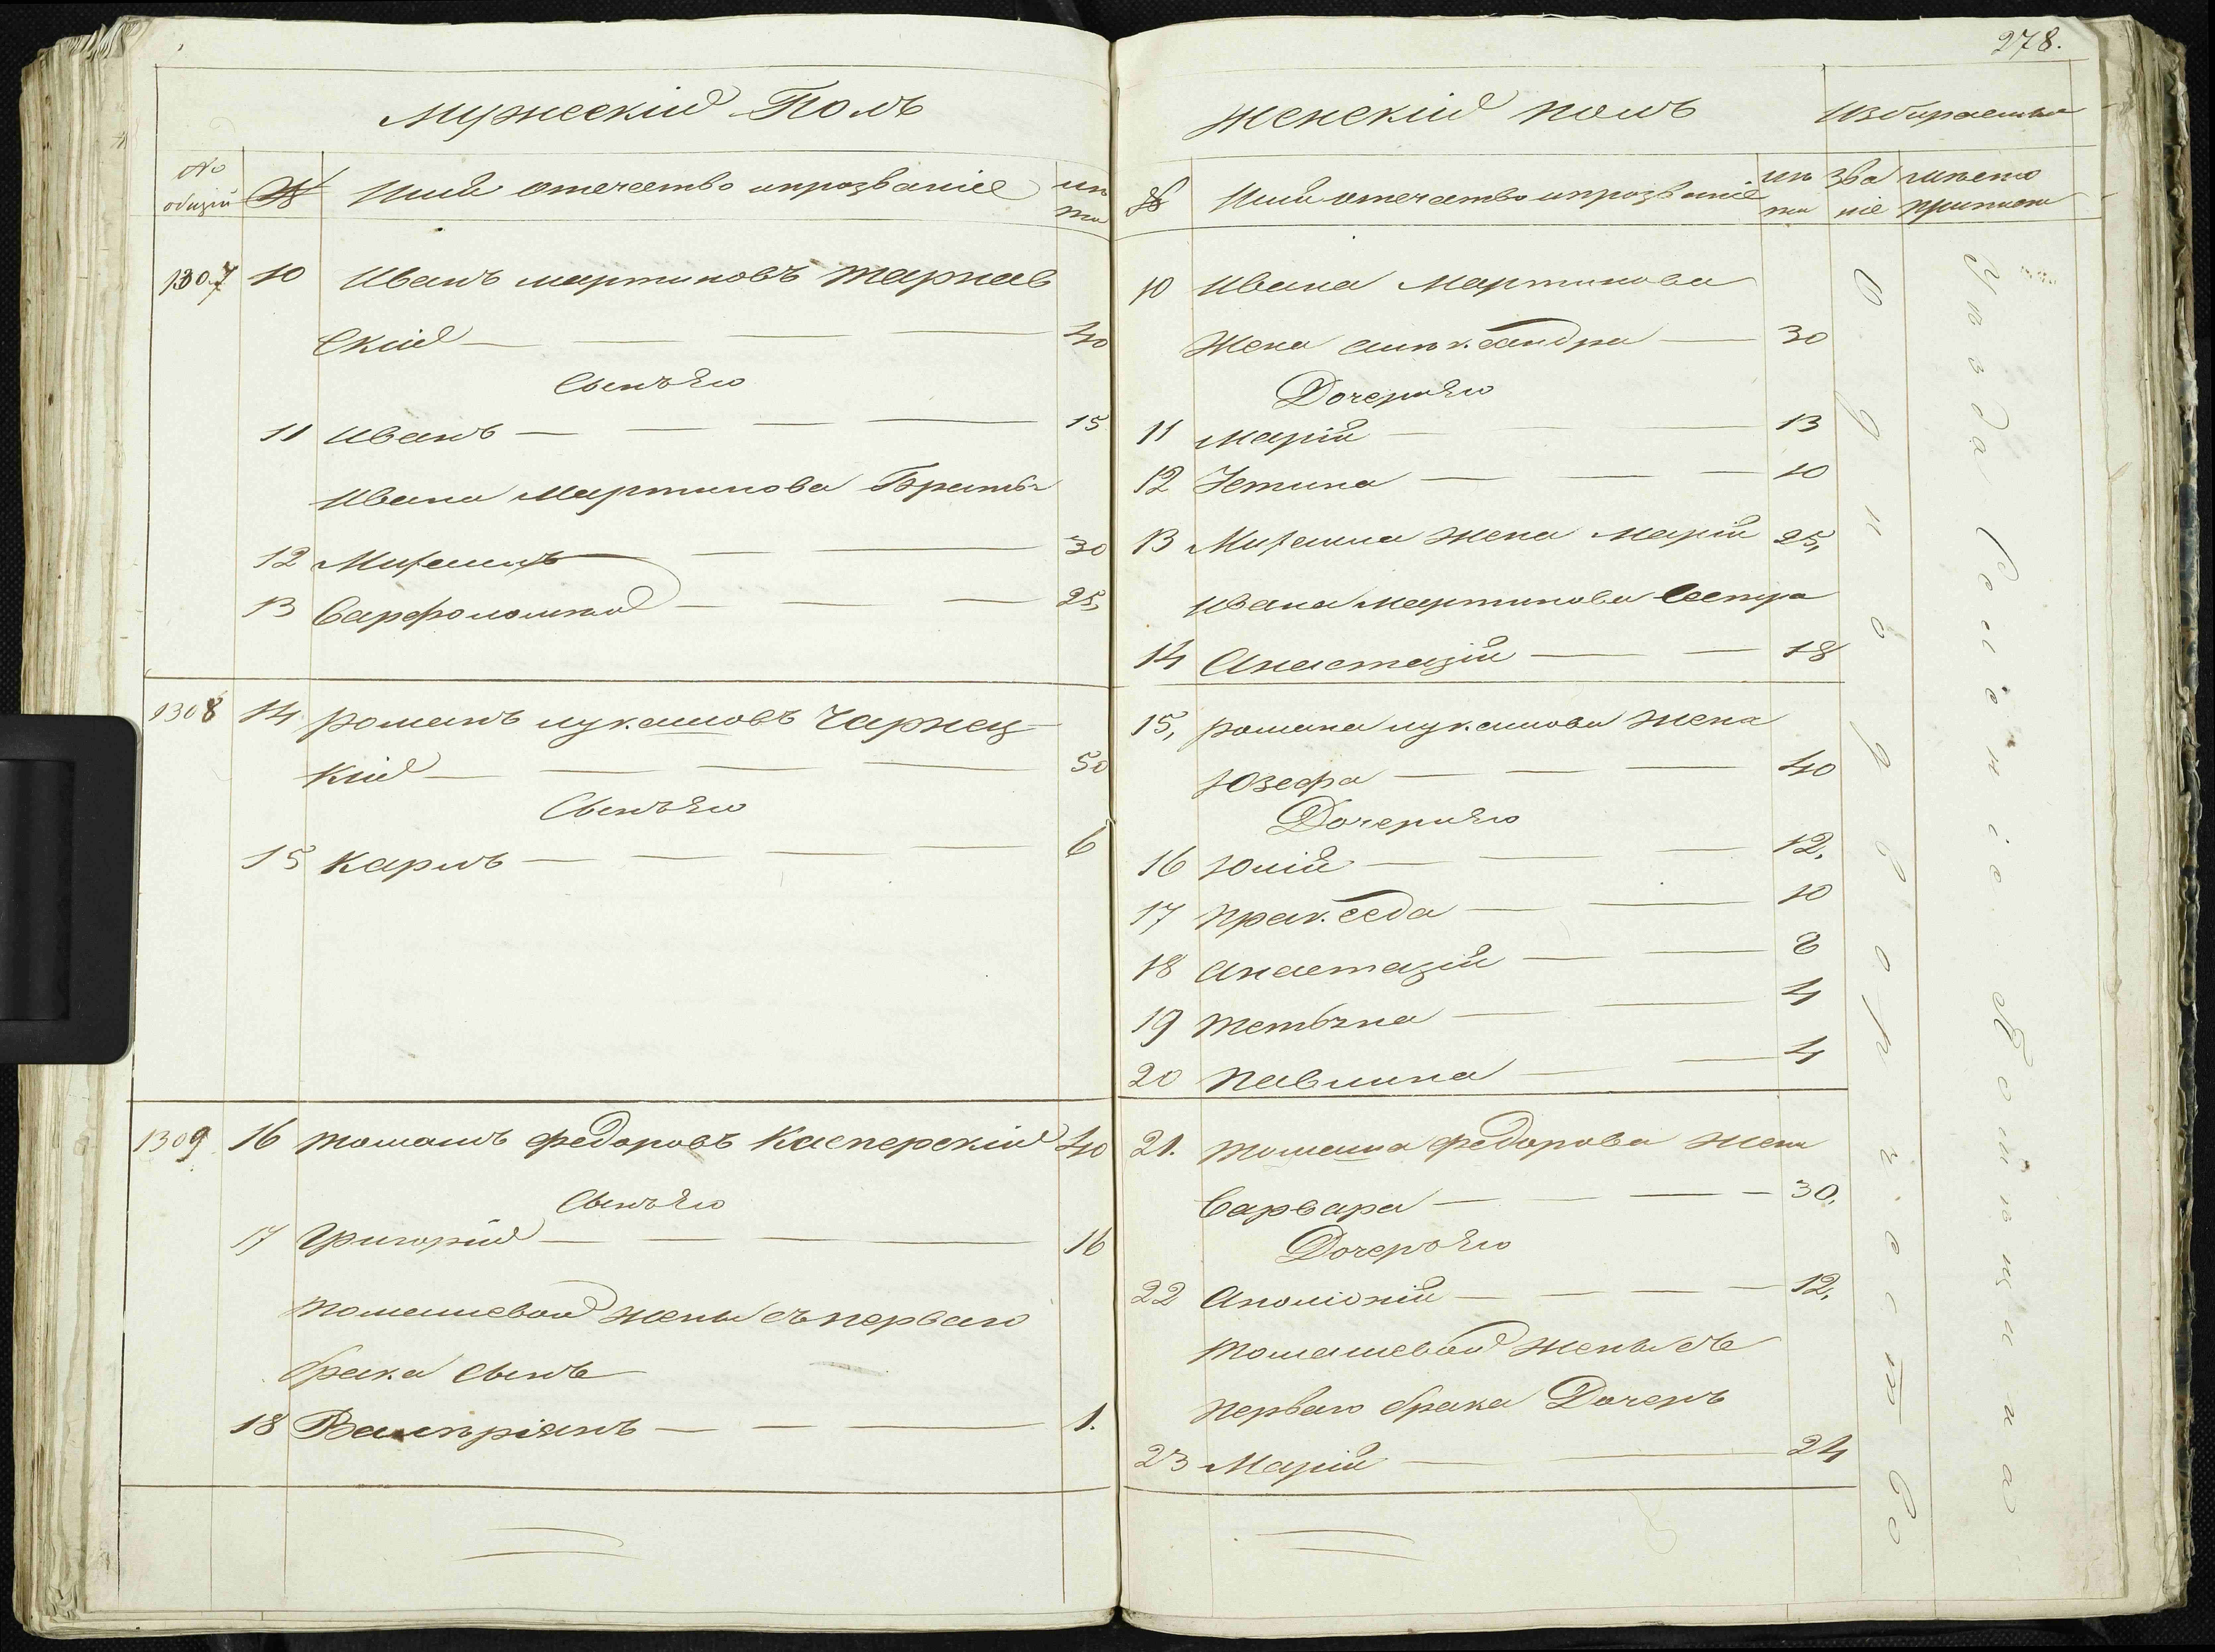 278.
Мужескій Полъ
№ общій № Имя отечество ипрозваніе лѣта
1307 10 Иванъ мартиновъ тарнав
Скій 40
Сынъ Его
11 Иванъ 15
Ивана Мартинова Братья
12 Михаилъ 30
13 Варфоломѣй 25,
1308 14 романъ лукашовъ Чарнец
Кій 50
Сынъ Его
15 Карлъ 6
1309 16 томашъ федоровъ Касперскій 40
Сынъ Его
17 Григорій 16
томашевой жены съперваго
брака Сынъ
18 Валѣріянъ 1.
Женскій полъ Избираемое
№ Имя отечество ипрозваніе лѣта Званіе мѣсто приписки
10 Ивана Мартинова
Жена алѣксандра 30
Дочери Его
11 Марія 13
12 Устина 10
13 Михаила Жена Марія 25,
Ивана мартинова Сестра
14 Анастазія 18
15, романа лукашова Жена
Юзефа 40
Дочери Его
16 Юлія 12,
17 пракседа 10
18 анастазія 8
19 20 павлина 4
21. томаша федорова Жена
Варвара 30,
Дочерь Его
22 Аполіонія 12,
томашевой Жены съ
перваго брака Дочерь
23 Марія 24
Однодворчество
Уезда Селеніе